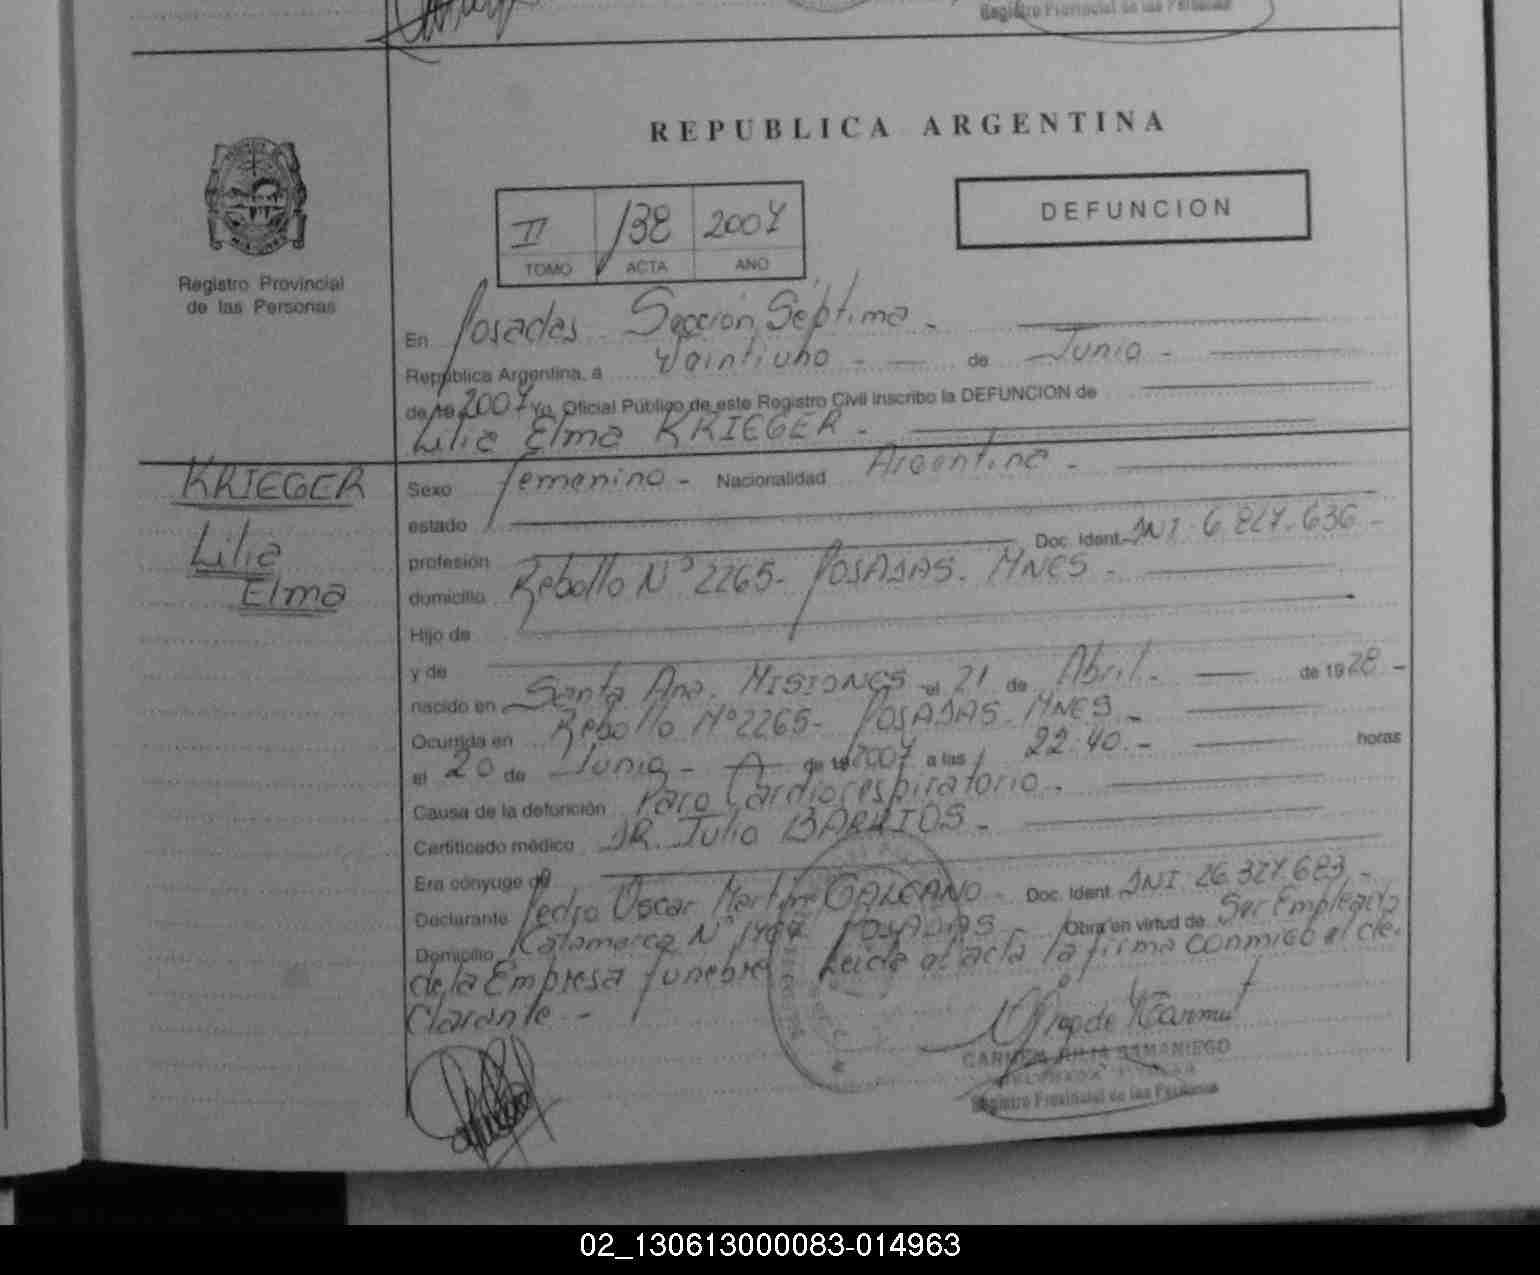 Registro Provincial de las Personas
REPUBLICA ARGENTINA
II 138 2007
TOMO ACTA AÑO
DEFUNCION
Registro Provincial
de las Personas
En Posadas Sección Séptima -
República Argentina, a Veintiuno - de Junio -
de 19 2007 Yo, Oficial Público de este Registro Civil inscribo la DEFUNCION de
Lilia Elma KRIEGER -
KRIEGER
Lilia
Elma
Sexo femenino - Nacionalidad Argentina -
estado
profesión Doc. Ident. DNI 6.827.636 -
domicilio Rebollo Nº 2265 - POSADAS. MNES -
Hijo de
y de
nacido en Santa Ana. MISIONES el 21 de Abril - de 1928 -
Ocurrida en Rebollo Nº 2265 - POSADAS. MNES -
el 20 de Junio - de 19 2007 a las 22.40 - horas
Causa de la defunción Paro Cardiorespiratorio -
Certificado médico DR. Julio BARRIOS -
Era cónyuge de
Declarante Pedro Oscar Martin GALEANO - Doc. Ident. DNI 26.327.683 -
Domicilio Catamarca Nº POSADAS - Obra en virtud de Ser Empleado
de la Empresa funebre Leida el acta la firma conmigo el de-
clarante -
CARMEN JULIA SAMANIEGO
Registro Provincial de las Personas
02_130613000083-014963